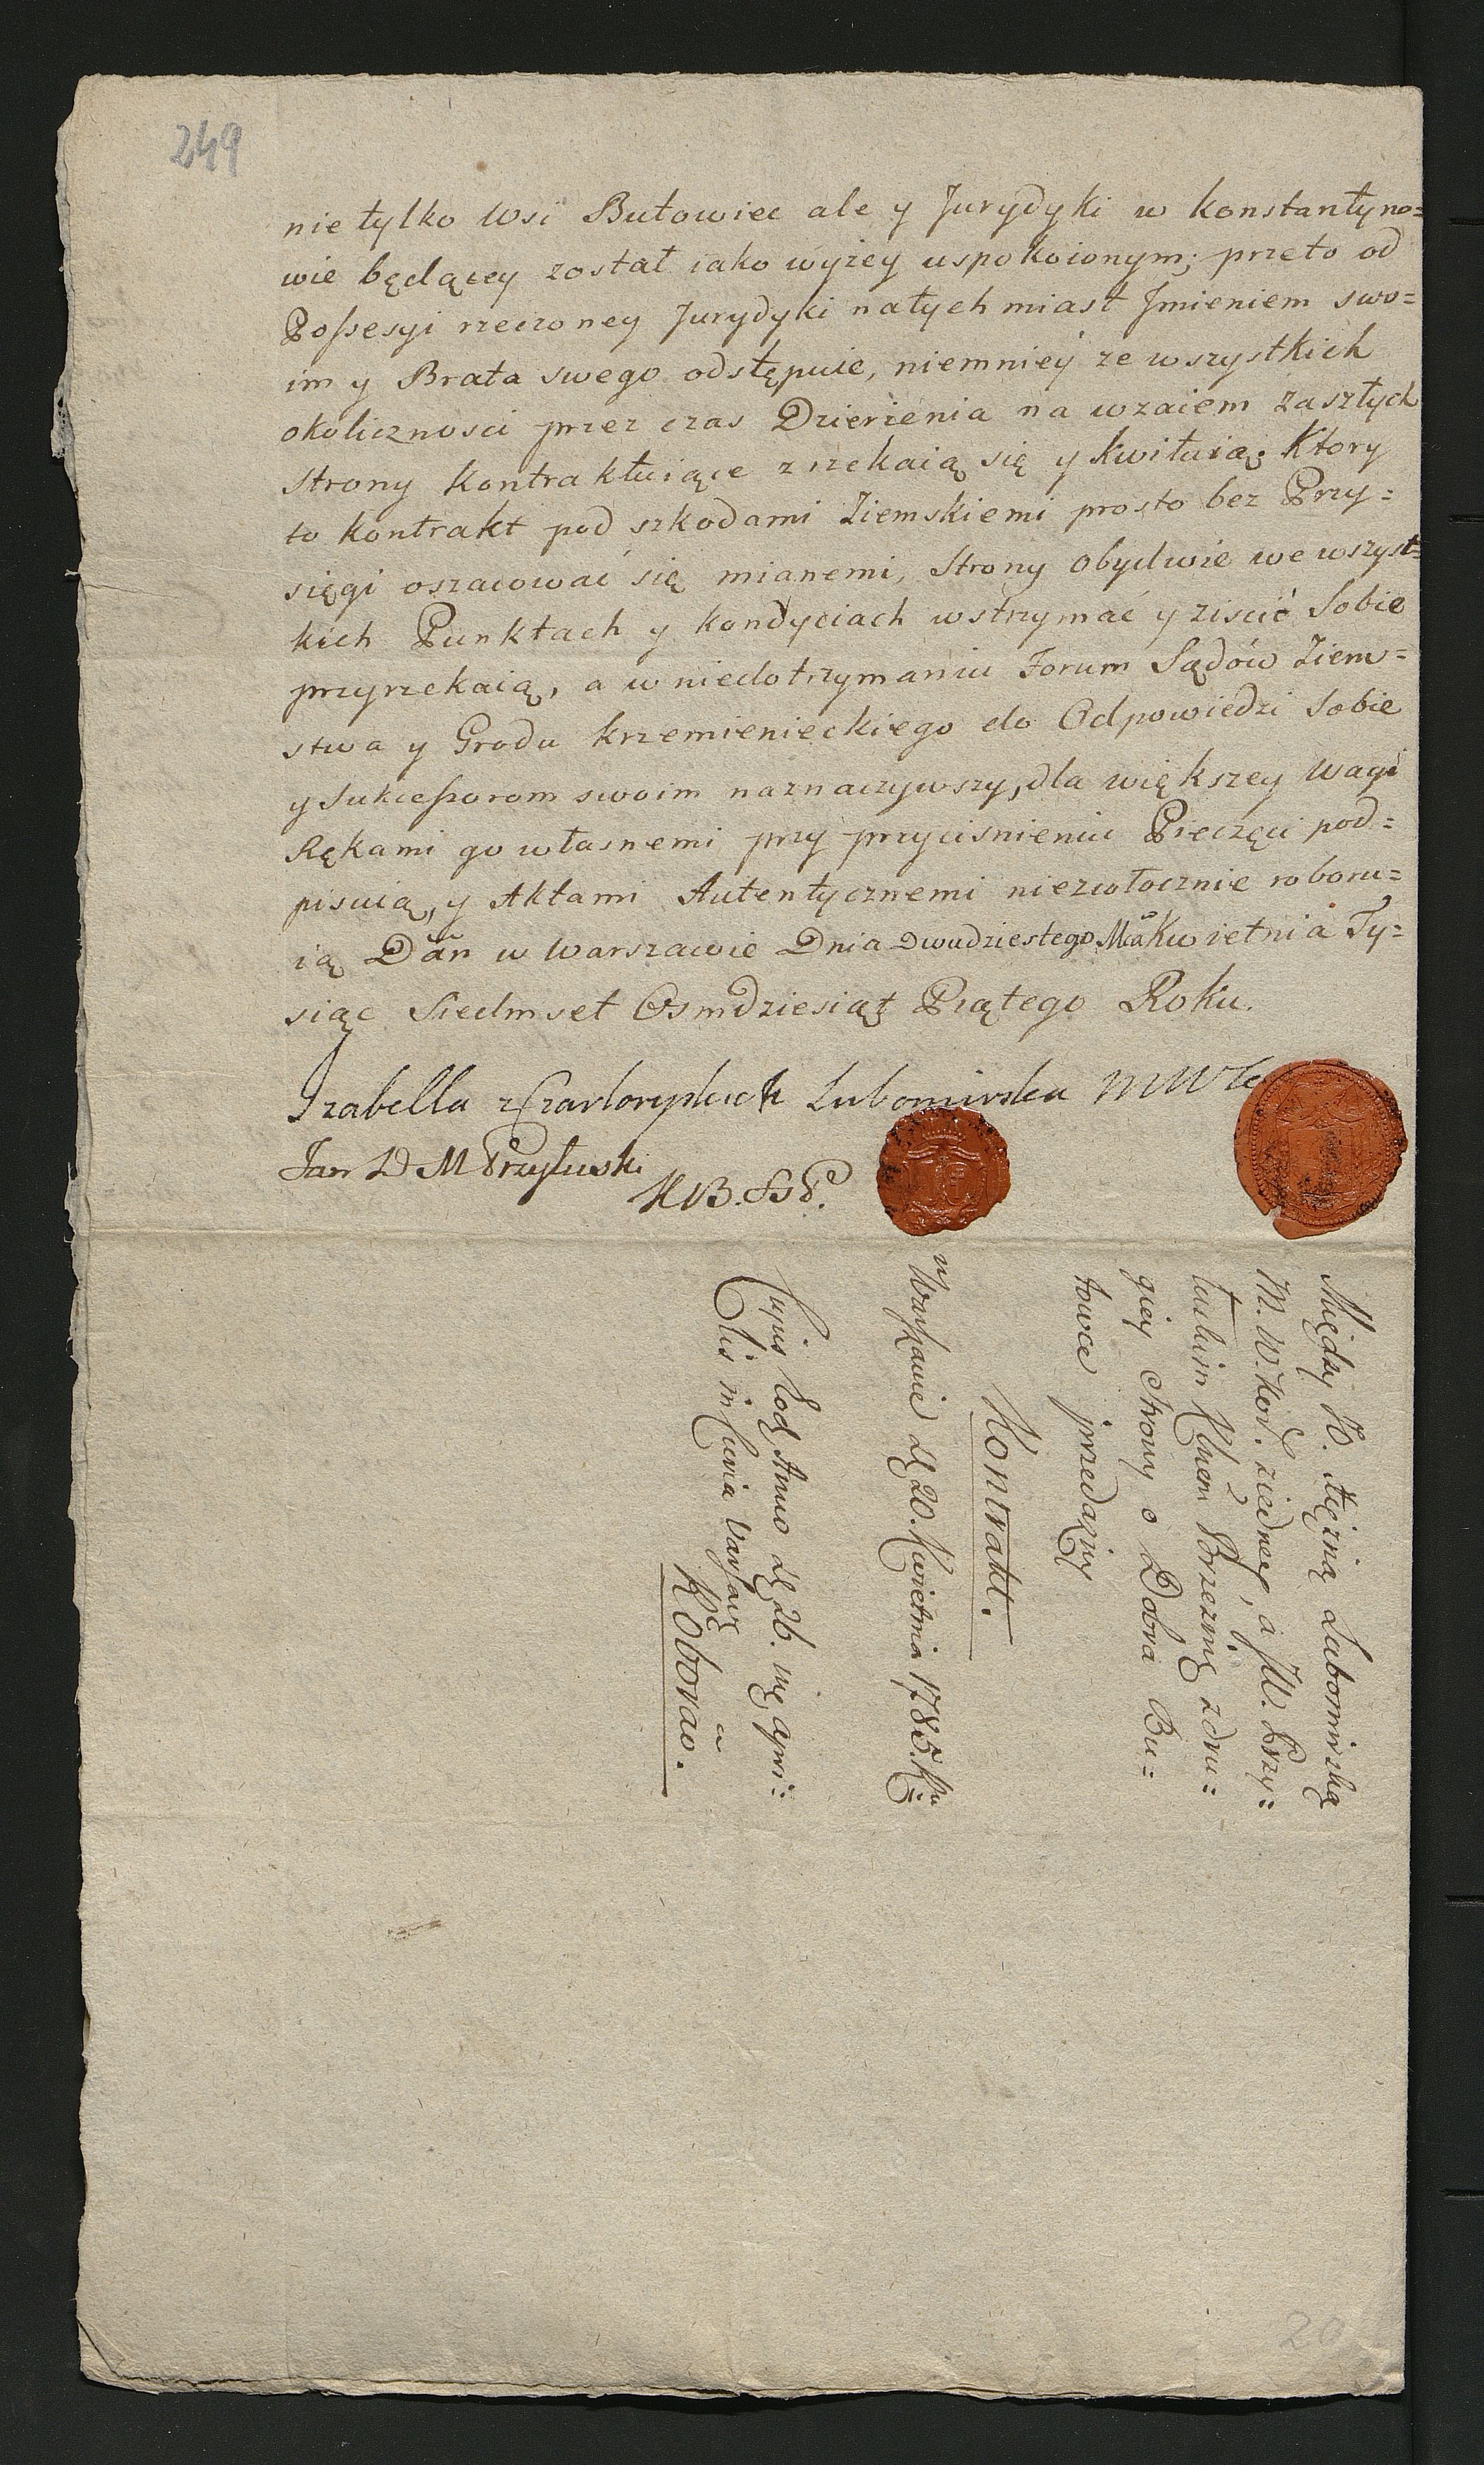 249
nie tylko Wsi Butowiec ale y Jurydyki w Konstantyno=
wie będącey został iako wyżey uspokoionym; przeto od
Possesyi rzeczoney Jurydyki natychmiast Jmieniem swo=
im y Brata swego odstępuie, niemniey ze wszystkich
okoliczności przez czas Dzierżenia na wzaiem zaszłych
Strony Kontraktuiące zrzekaią się y Kwituią; Ktory
to Kontrakt pod szkodami Ziemskiemi prosto bez Przy=
sięgi oszacować się mianemi, Strony obydwie we wszyst=
kich Punktach y Kondyciach wstrzymać y ziścić Sobie
przyrzekaią, a w niedotrzymaniu Forum Sądów Ziem=
stwa y Grodu Krzemienieckiego do Odpowiedzi Sobie
y Sukcessorom swoim naznaczywszy, dla większey Wagi
Rękami go własnemi przy przyciśnieniu Pieczęci pod=
pisuią, y Aktami Autentycznemi niezwłocznie roboru=
ią Dan w Warszawie Dnia Dwudziestego Mca Kwietnia Ty=
siąc Siedmset Osmdziesiąt Piątego Roku.
Izabella z Czartoryskich Lubomirska MWK
Jan D M Przyłuski
KB. SSP.
Między JO. Xiężną Lubomirską
M. W. Kor. ziedney, a JW. Przy=
łuskim Brzeznę z dru=
giey Strony o Dobra Bu=
towce przedażny
Kontrakt.
w Warszawie D. 20. Kwietnia 1785. Rku
Cujus Eod Anno D. 26. Aprí=
lis in Curia Varsav
Roborao.
20